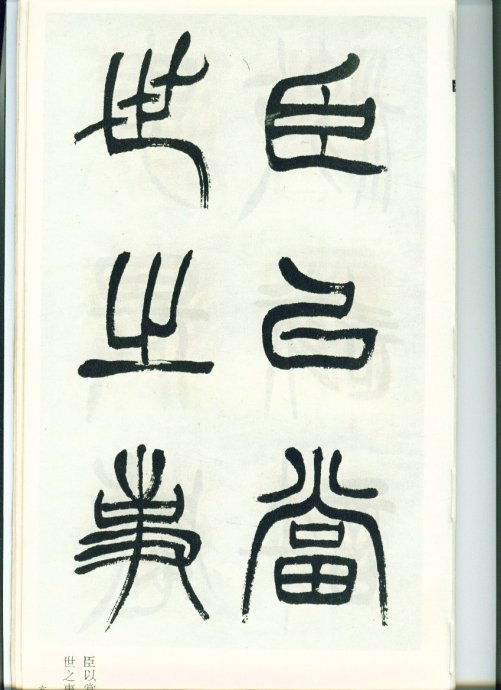 臣以當
世之事
臣以當
世之事